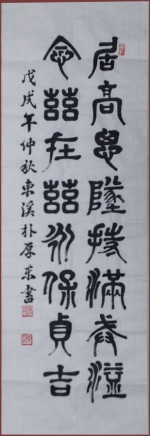 居高思墜持滿戒溢
念茲在茲永保貞吉
戊戌年仲秋東溪朴厚東書